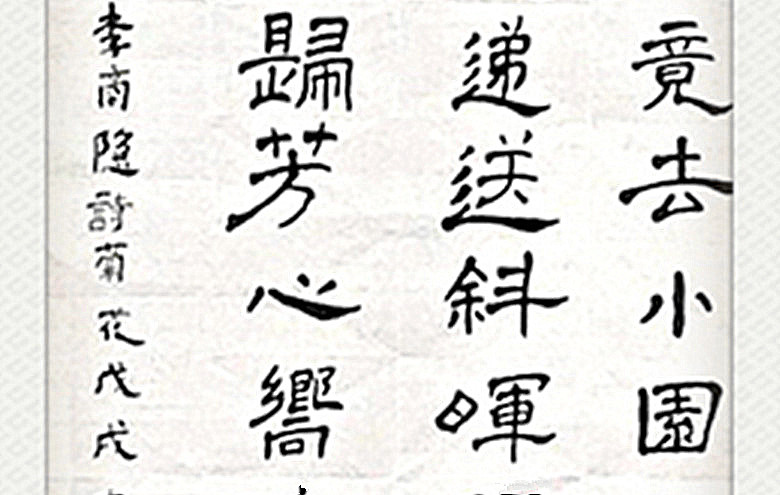 竟去小園
遞送斜暉
歸芳心嚮
李商隱詩菊花戊戌